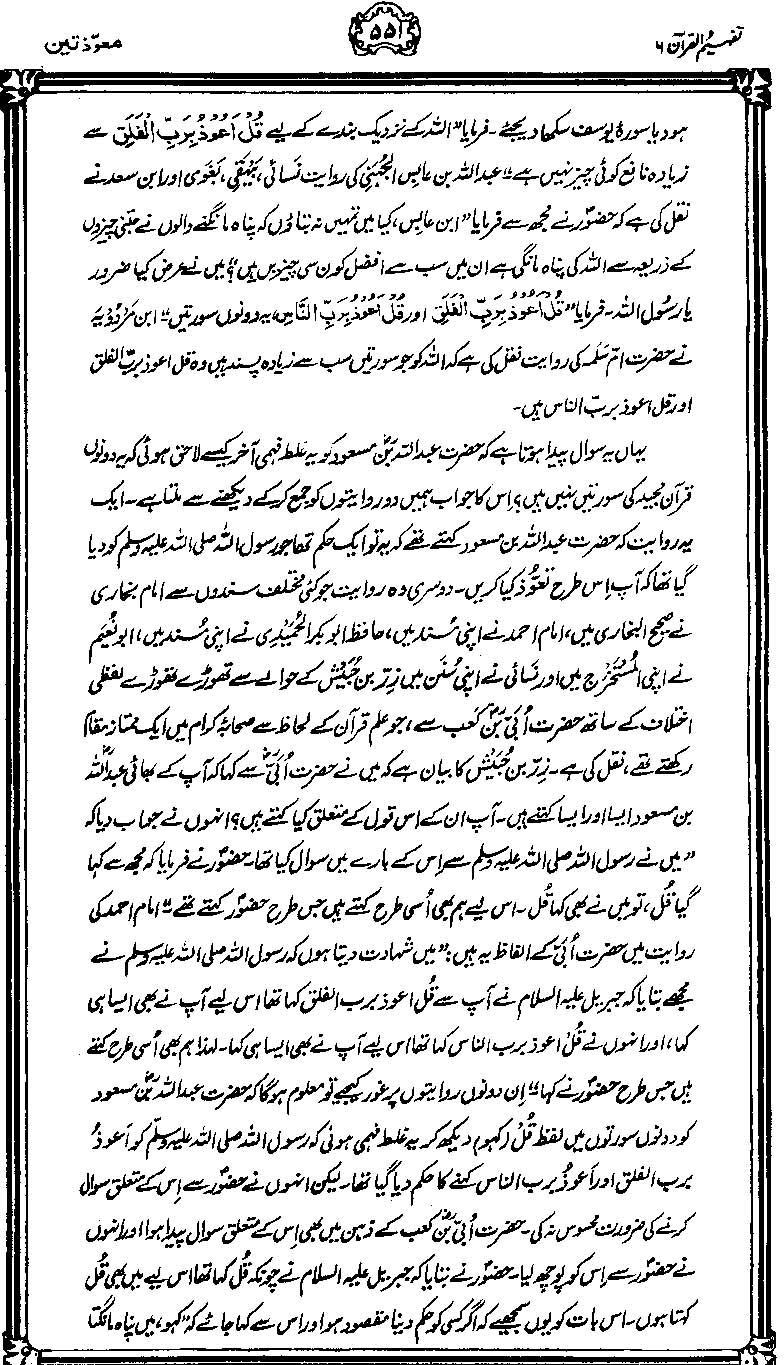 تفہیم القرآن ۶
۵۵۱
معوّذتین
ہود یا سورۂ یوسف سکھا دیجئے۔ فرمایا ”اللہ کے نزدیک بندے کے لیے قُلْ اَعُوْذُ بِرَبِّ الْفَلَقِ سے
زیادہ نافع کوئی چیز نہیں ہے“ عبداللہ بن عابس الجُہَنِی کی روایت نسائی، بَیْہَقِی، بَغَوی اور ابن سعد نے
نقل کی ہے کہ حضورؐ نے مجھ سے فرمایا ”ابن عابس، کیا میں تمہیں نہ بتاؤں کہ پناہ مانگنے والوں نے جتنی چیزوں
کے ذریعہ سے اللہ کی پناہ مانگی ہے ان میں سب سے افضل کون سی چیزیں ہیں؟ میں نے عرض کیا ضرور
یا رسول اللہ۔ فرمایا ”قُلْ اَعُوْذُ بِرَبِّ الْفَلَقِ اور قُلْ اَعُوْذُ بِرَبِّ النَّاسِ، یہ دونوں سورتیں“ ابن مَرْدُوْیَہ
نے حضرت امّ سَلَمہ کی روایت نقل کی ہے کہ اللہ کو جو سورتیں سب سے زیادہ پسند ہیں وہ قل اعوذ بربّ الفلق
اور قل اعوذ بربّ الناس ہیں۔
یہاں یہ سوال پیدا ہوتا ہے کہ حضرت عبداللہ بنؓ مسعود کو یہ غلط فہمی آخر کیسے لاحق ہوئی کہ یہ دونوں
قرآن مجید کی سورتیں نہیں ہیں؟ اس کا جواب ہمیں دو روایتوں کو جمع کر کے دیکھنے سے ملتا ہے۔ ایک
یہ روایت کہ حضرت عبداللہ بن مسعود کہتے تھے کہ یہ تو ایک حکم تھا جو رسول اللہ صلی اللہ علیہ وسلم کو دیا
گیا تھا کہ آپ اِس طرح تَعَوُّذ کیا کریں۔ دوسری وہ روایت جو کئی مختلف سندوں سے امام بخاری
نے صحیح البخاری میں، امام احمد نے اپنی مُسند میں، حافظ ابوبکر الحُمَیدِی نے اپنی مُسند میں، ابو نُعَیم
نے اپنی المُسْتَخْرَج میں اور نَسائی نے اپنی سُنَن میں زِرّ بن حُبَیْش کے حوالے سے تھوڑے تھوڑے لفظی
اختلاف کے ساتھ حضرت اُبَیّ بنؓ کعب سے، جو علم قرآن کے لحاظ سے صحابۂ کرام میں ایک ممتاز مقام
رکھتے تھے، نقل کی ہے۔ زِرّ بن حُبَیْش کا بیان ہے کہ میں نے حضرت اُبَیّؓ سے کہا کہ آپ کے بھائی عبداللہؓ
بن مسعود ایسا اور ایسا کہتے ہیں۔ آپ ان کے اس قول کے متعلق کیا کہتے ہیں؟ انہوں نے جواب دیا کہ
”میں نے رسول اللہ صلی اللہ علیہ وسلم سے اس کے بارے میں سوال کیا تھا۔ حضورؐ نے فرمایا کہ مجھ سے کہا
گیا قُل، تو میں نے بھی کہا قُل۔ اس لیے ہم بھی اُسی طرح کہتے ہیں جس طرح حضورؐ کہتے تھے“ امام احمد کی
روایت میں حضرت اُبَیّؓ کے الفاظ یہ ہیں: ”میں شہادت دیتا ہوں کہ رسول اللہ صلی اللہ علیہ وسلم نے
مجھے بتایا کہ جبریل علیہ السلام نے آپ سے قُل اعوذ برب الفلق کہا تھا اس لیے آپ نے بھی ایسا ہی
کہا، اور انہوں نے قُلْ اعوذ برب الناس کہا تھا اس لیے آپ نے بھی ایسا ہی کہا۔ لہٰذا ہم بھی اُسی طرح کہتے
ہیں جس طرح حضورؐ نے کہا“ اِن دونوں روایتوں پر غور کیجیے تو معلوم ہوگا کہ حضرت عبداللہ بنؓ مسعود
کو دونوں سورتوں میں لفظ قُلْ (کہو) دیکھ کر یہ غلط فہمی ہوئی کہ رسول اللہ صلی اللہ علیہ وسلم کو اَعوذُ
برب الفلق اور اَعوذُ برب الناس کہنے کا حکم دیا گیا تھا۔ لیکن انہوں نے حضورؐ سے اِس کے متعلق سوال
کرنے کی ضرورت محسوس نہ کی۔ حضرت اُبَیّ بنؓ کعب کے ذہن میں بھی اِس کے متعلق سوال پیدا ہوا اور انہوں
نے حضورؐ سے اِس کو پوچھ لیا۔ حضورؐ نے بتایا کہ جبریل علیہ السلام نے چونکہ قُل کہا تھا اس لیے میں بھی قُل
کہتا ہوں۔ اس بات کو یوں سمجھیے کہ اگر کسی کو حکم دینا مقصود ہو اور اس سے کہا جائے کہ ”کہو، میں پناہ مانگتا